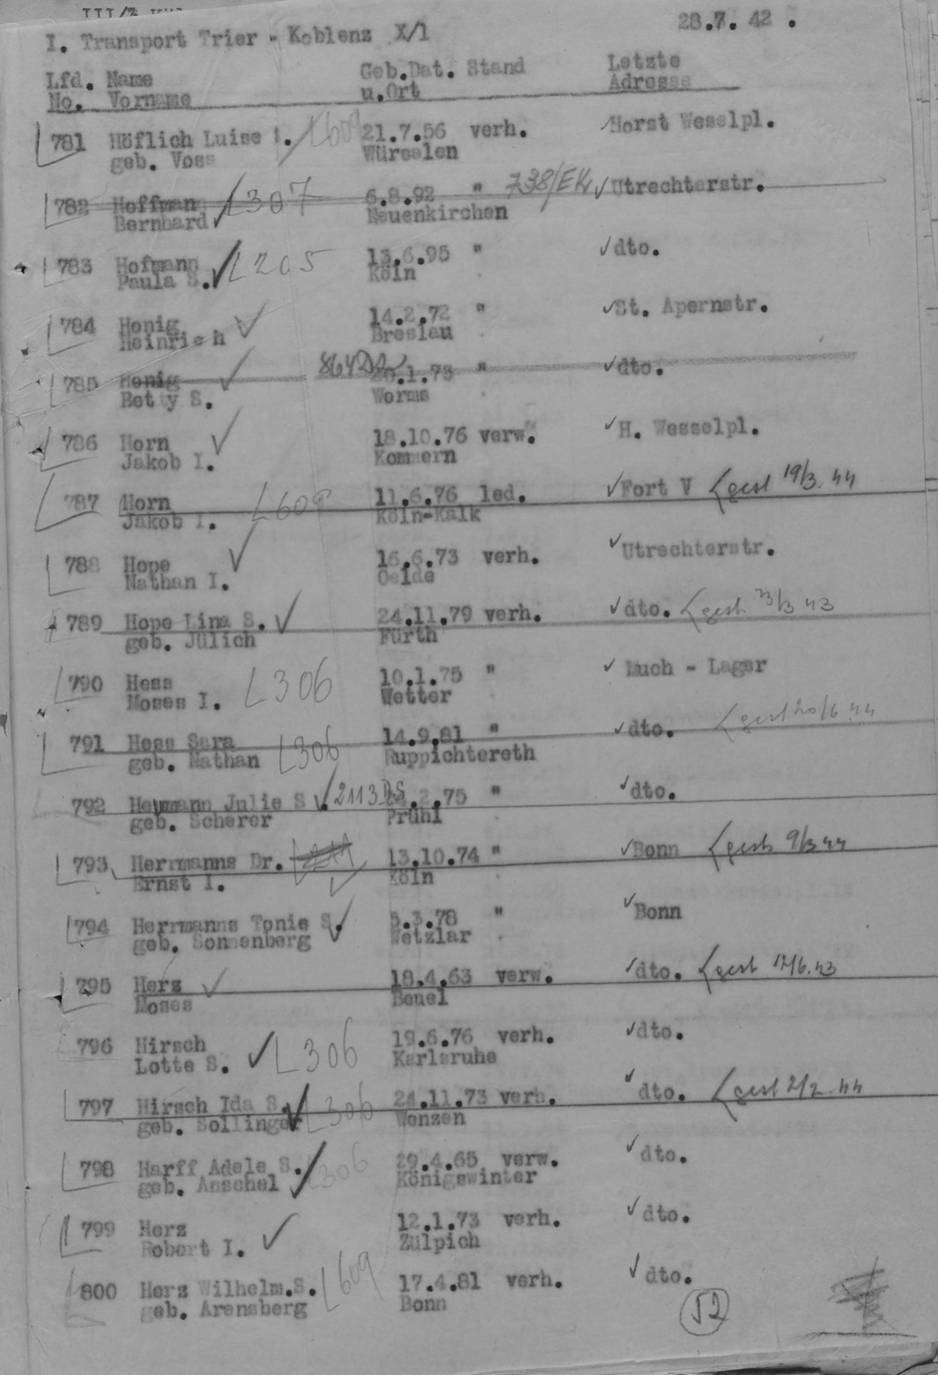 III/2
I. Transport Trier - Koblenz X/1 28.7. 42 .
Lfd. Name Geb.Dat. Stand Letzte
No. Vorname u.Ort Adresse
781 Höflich Luise S. L609 21.7.56 verh. Horst Weselpl.
geb. Voss Würselen
782 Hoffmann L307 6.8.92 " 738/EK Utrechterstr.
Bernhard Neuenkirchen
783 Hofmann L205 13.6.95 " dto.
Paula S. Köln
784 Honig 14.2.72 " St. Apernstr.
Heinrich Breslau
785 Honig 864 .1.73 " dto.
Betty S. Worms
786 Horn 18.10.76 verw. H. Wesselpl.
Jakob I. Kommern
787 Horn L609 11.6.76 led. Fort V gest 19/3. 44
Jakob I. Köln-Kalk
788 Hope 16.6.73 verh. Utrechterstr.
Nathan I. Oelde
789 Hope Lina S. 24.11.79 verh. dto. gest 23/3 43
geb. Jülich Fürth
790 Hess L306 10.1.75 " Much - Lager
Moses I. Wetter
791 Hess Sara L306 14.9.81 " dto. gest 20/6 44
geb. Nathan Ruppichtereth
792 Heumann Julie S 2113 .2.75 " dto.
geb. Scherer Brühl
793 Herrmanns Dr. 13.10.74 " Bonn gest 9/3 44
Ernst I. Köln
794 Herrmanns Tonie S. 5.3.78 " Bonn
geb. Sonnenberg Wetzlar
795 Herz 18.4.63 verw. dto. gest 12/6.43
Moses Beuel
796 Hirsch L306 19.6.76 verh. dto.
Lotte S. Karlsruhe
797 Hirsch Ida S. L306 24.11.73 verh. dto. gest 2/2.44
geb. Sollinger Wenzen
798 Harff Adele S. L306 29.4.65 verw. dto.
geb. Anschel Königswinter
799 Herz 12.1.73 verh. dto.
Robert I. Zülpich
800 Herz Wilhelm.S. L609 17.4.81 verh. dto.
geb. Arensberg Bonn
52